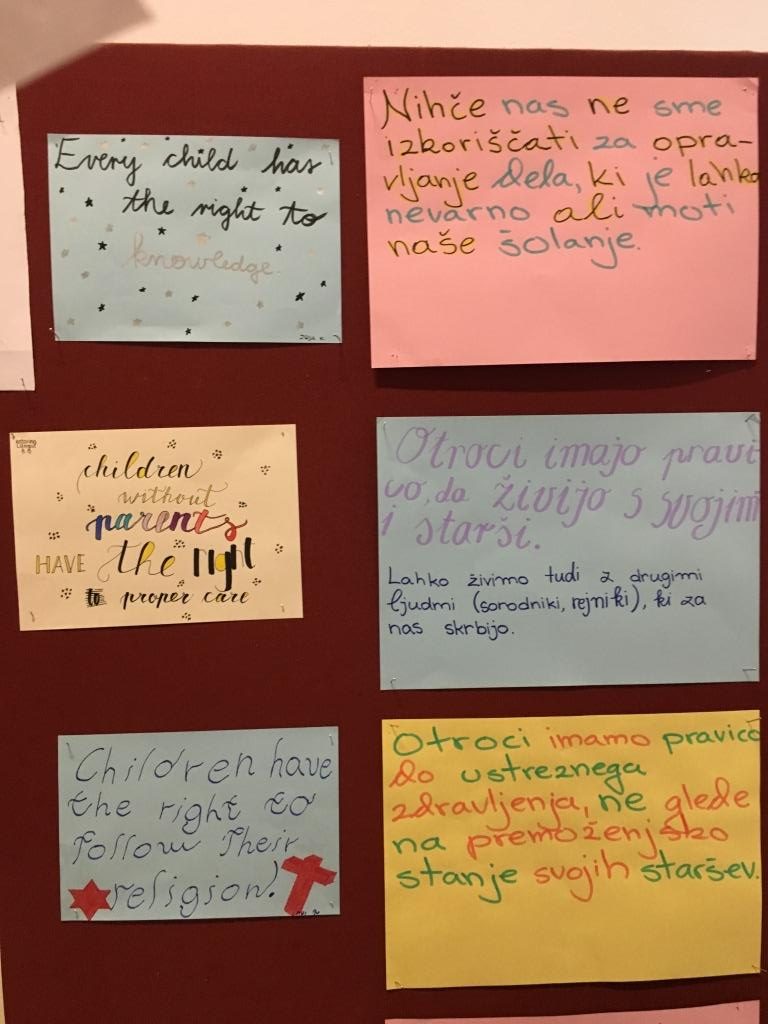 Every child has
the right to
knowledge.
Nihče nas ne sme
izkoriščati za opra-
vljanje dela, ki je lahko
nevarno ali moti
naše šolanje.
children
without
parents
HAVE the right
to proper care
Otroci imajo pravi
co, da živijo s svojim
i starši.
Lahko živimo tudi z drugimi
ljudmi (sorodniki, rejniki), ki za
nas skrbijo.
Children have
the right to
follow Their
religion!
Otroci imamo pravico
do ustreznega
zdravljenja, ne glede
na premoženjsko
stanje svojih staršev.